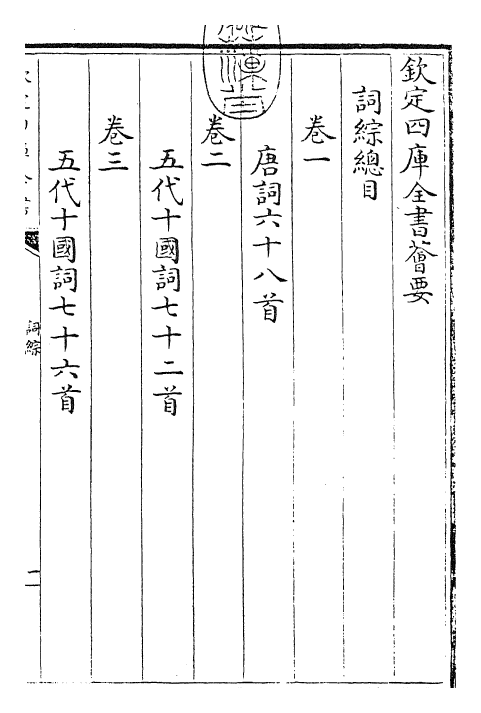 欽定四庫全書薈要
詞綜總目
卷一
唐詞六十八首
卷二
五代十國詞七十二首
卷三
五代十國詞七十六首
詞綜